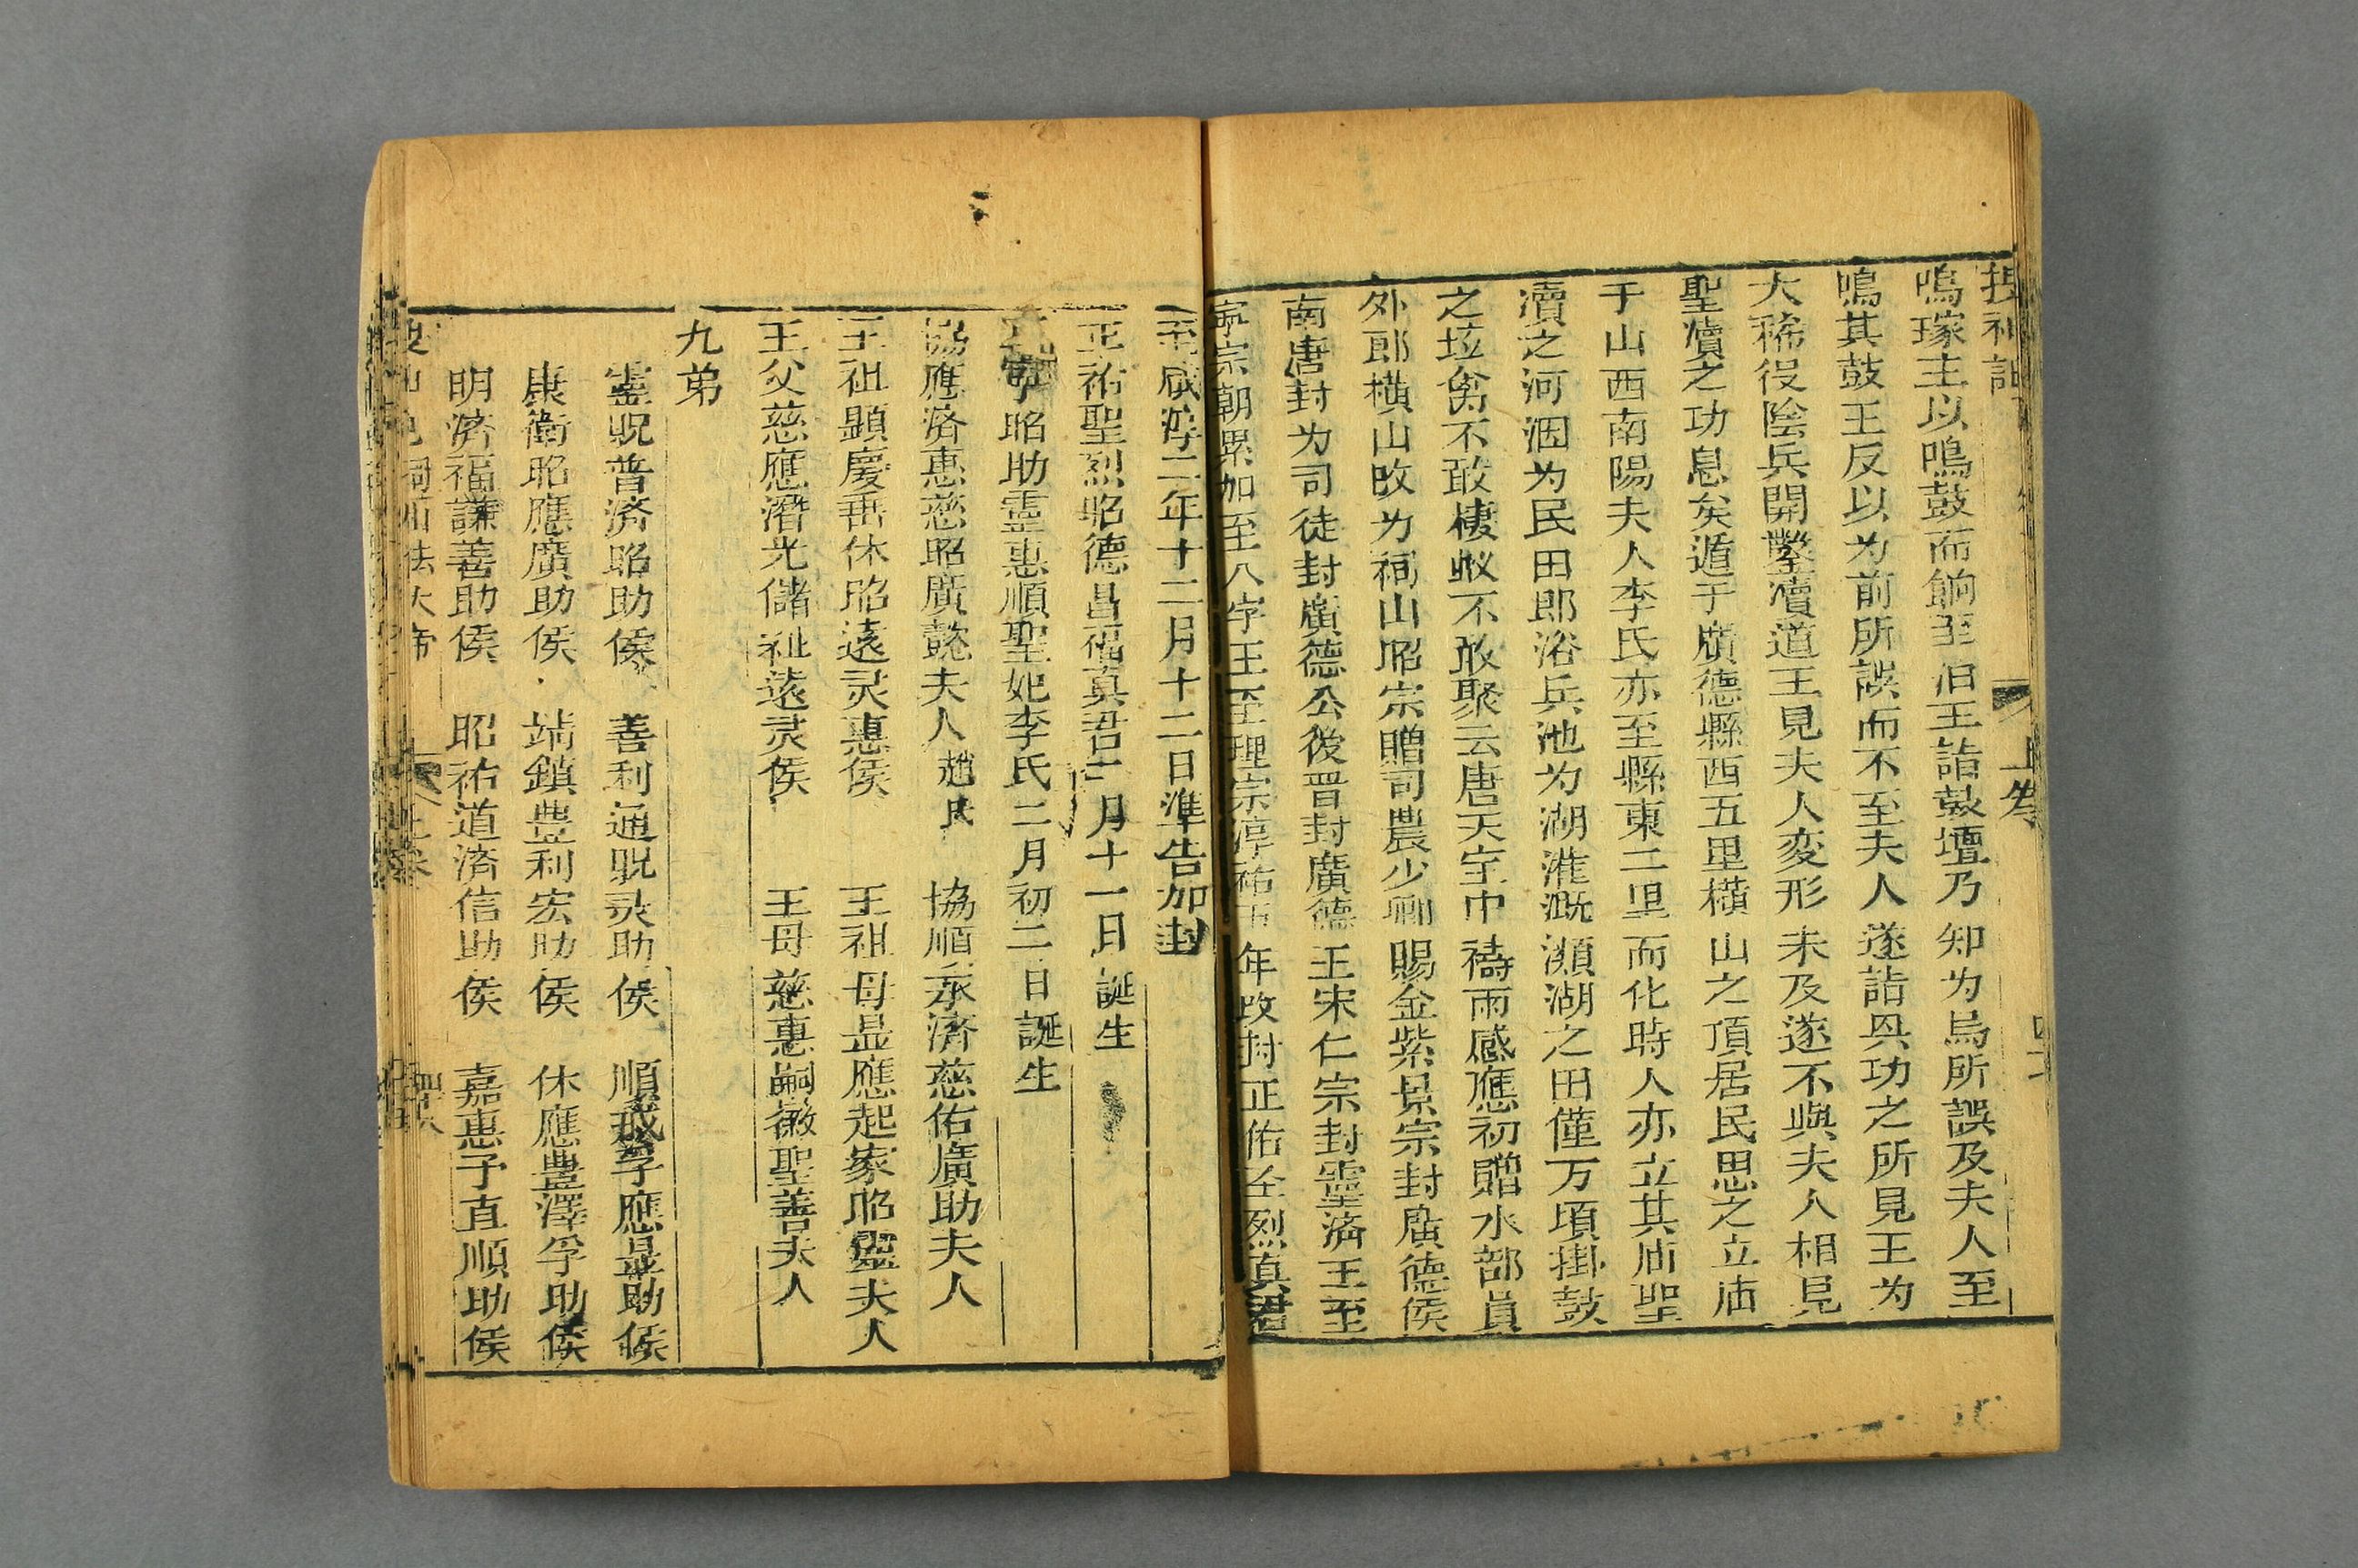 搜神記
上卷
鳴瑑主以鳴鼓而餉至洎王詣鼓壇乃知为烏所誤及夫人至
鳴其鼓王反以为前所誤而不至夫人遂詣興功之所見王为
大豨役陰兵開鑿瀆道王見夫人変形未及遂不與夫人相見
聖瀆之功息矣遁于廣德縣西五里橫山之頂居民思之立庙
于山西南陽夫人李氏亦至縣東二里而化時人亦立其庙聖
瀆之河涸为民田郎浴兵池为湖灌溉瀕湖之田僅万頃掛鼓
之垃禽不敢棲蚁不敢聚云唐天宝中禱雨感應初贈水部員
外郎橫山改为祠山昭宗贈司農少卿賜金紫景宗封廣德侯
南唐封为司徒封廣德公後晋封廣德王宋仁宗封靈济王至
寧宗朝累加至八字王至理宗淳祐五年改封正佑圣烈真君
至咸淳二年十二月十二日準告加封
正祐聖烈昭德昌福真君二月十一日誕生
昭助靈惠順聖妃李氏二月初二日誕生
協應済惠慈昭廣懿夫人趙氏 協順承濟慈佑廣助夫人
王祖顕慶垂休昭遠灵惠侯 王祖母显應起家昭靈夫人
王父慈應潛光儲祉遠灵侯 王母慈惠嗣徽聖善夫人
九弟
靈貺普済昭助侯 善利通貺灵助侯 順戒孚應显助侯
康衛昭應廣助侯 端鎮豊利宏助侯 休應豊澤孚助侯
明済福謙善助侯 昭祐道済信助侯 嘉惠予直順助侯
祠山 大帝